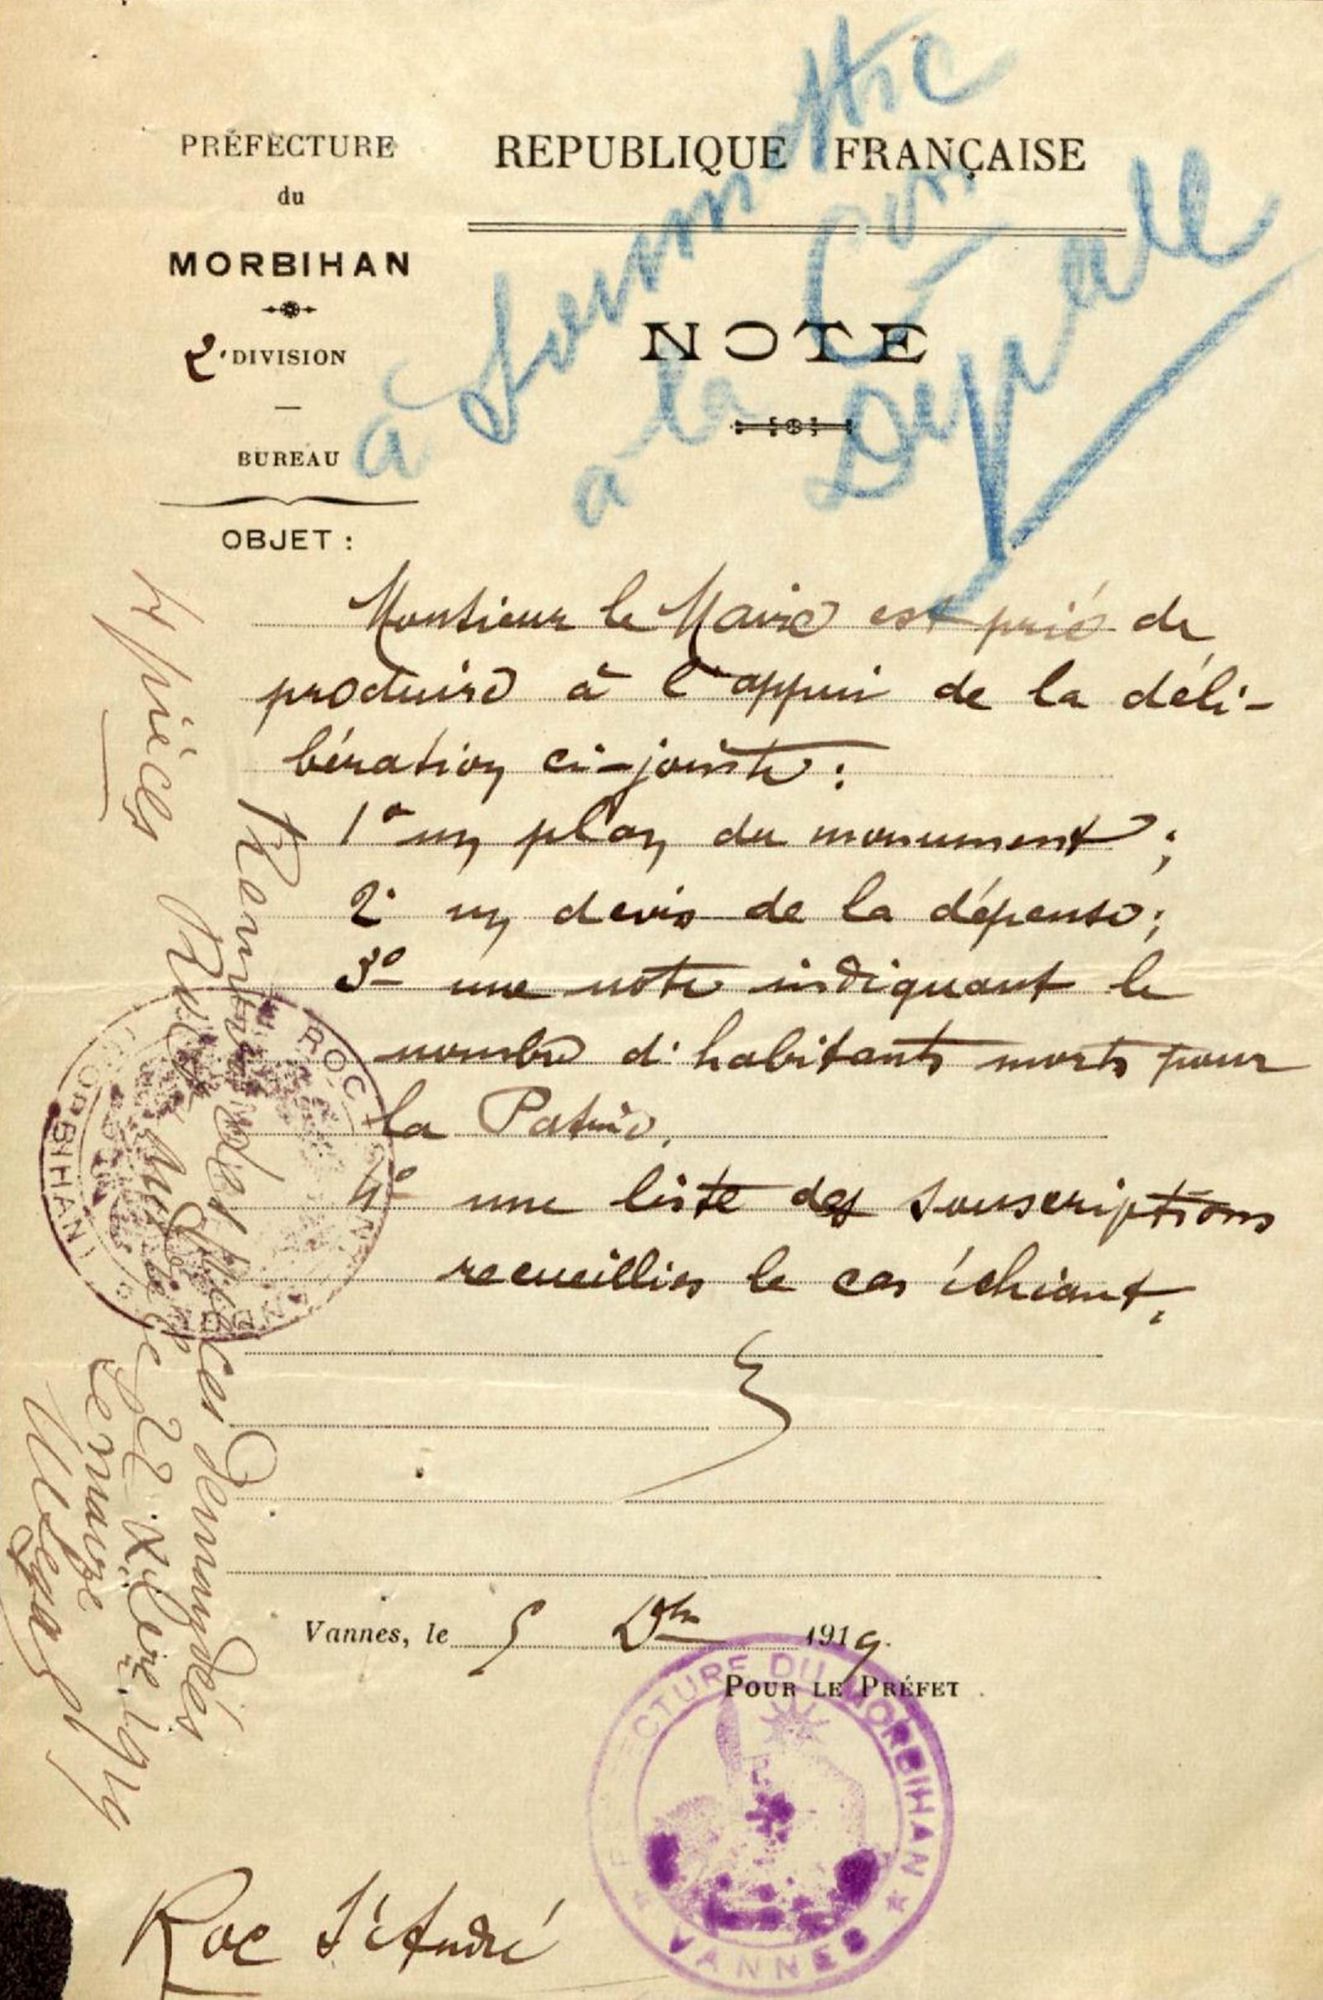 PRÉFECTURE
du
MORBIHAN
2e DIVISION
BUREAU
OBJET :
REPUBLIQUE FRANÇAISE
NOTE
à Soumettre
à la Con
Dépale
Monsieur le Maire est prié de
produire à l'appui de la déli-
bération ci-jointe :
1° un plan du monument ;
2° un devis de la dépense ;
3° une note indiquant le
nombre d'habitants morts pour
la Patrie.
4° une liste des souscriptions
recueillies le cas échéant.
Vannes, le 5 Dbre 1919.
POUR LE PRÉFET
PREFECTURE DU MORBIHAN
VANNES
Roc St André
4 pièces
des pièces demandées
Roc St André le 22 Xbre 1919
Le maire
ROC ST ANDRÉ
(MORBIHAN)